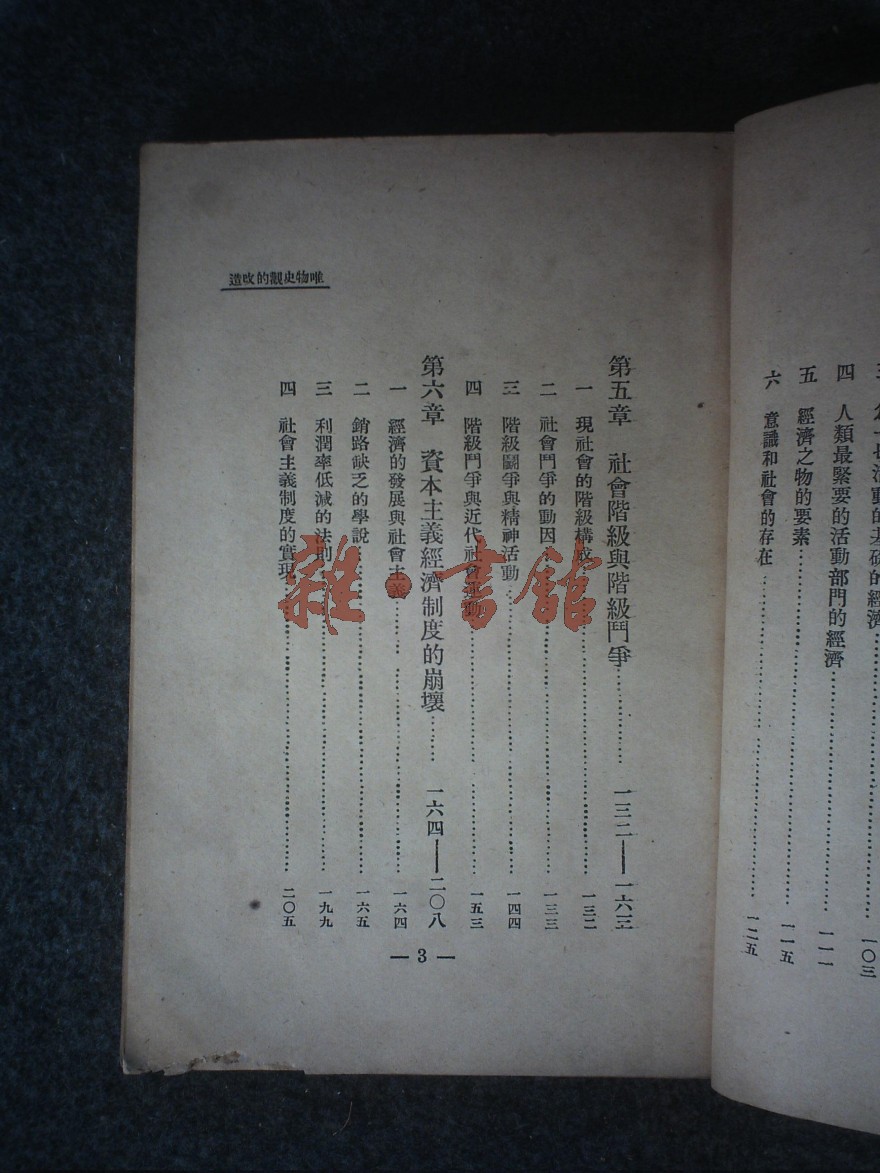 一切活動的基礎的經濟…………一〇三
四 人類最緊要的活動部門的經濟…………一一一
五 經濟之物的要素…………一一五
六 意識和社會的存在…………一二五
唯物史觀的改造
第五章 社會階級與階級鬥爭…………一三二——一六三
一 現社會的階級構成…………一三二
二 社會鬥爭的動因…………一三三
三 階級鬭爭與精神活動…………一四四
四 階級鬥爭與近代社會運動…………一五三
第六章 資本主義經濟制度的崩壞…………一六四——二〇八
一 經濟的發展與社會主義…………一六四
二 銷路缺乏的學說…………一六五
三 利潤率低減的法則…………一九九
四 社會主義制度的實現…………二〇五
— 3 —
雜·書館